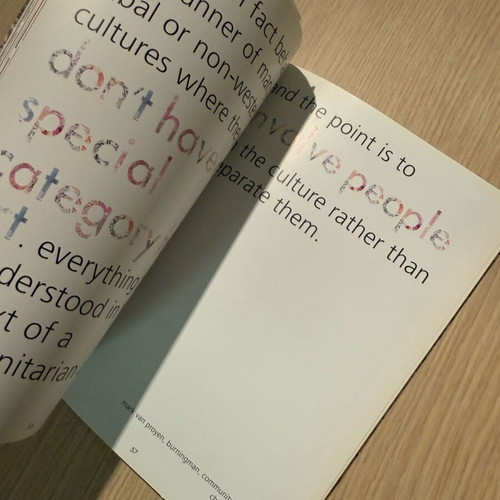 n fact bei
anner of man
bal or non-weste
cultures where the
don't have
special
category
rt. everything
derstood in
xt of a
nitarian
and the point is to
involve people
the culture rather than
parate them.
mark van proyen, burningman, communit
ch
57